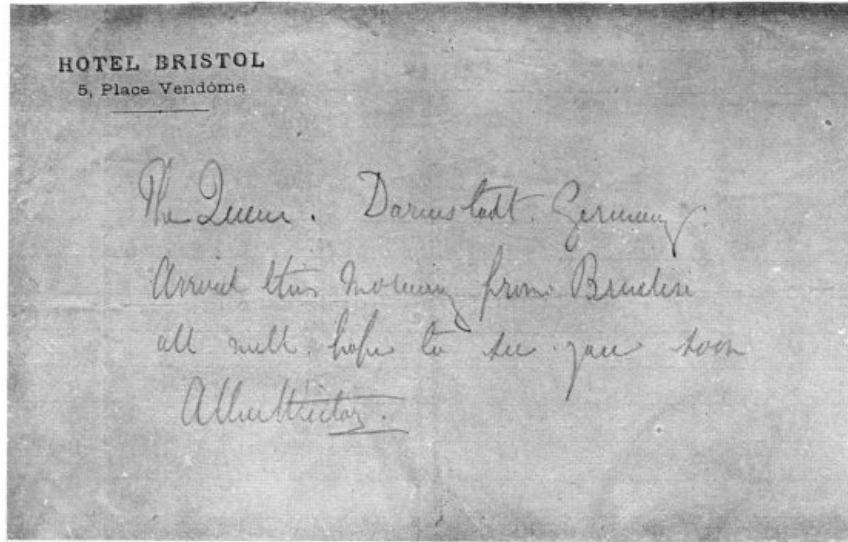 HOTEL BRISTOL
5, Place Vendôme
The Queen. Darmstadt. Germany.
Arrived this morning from Brindisi
all well. hope to see you soon
Albert Victor.